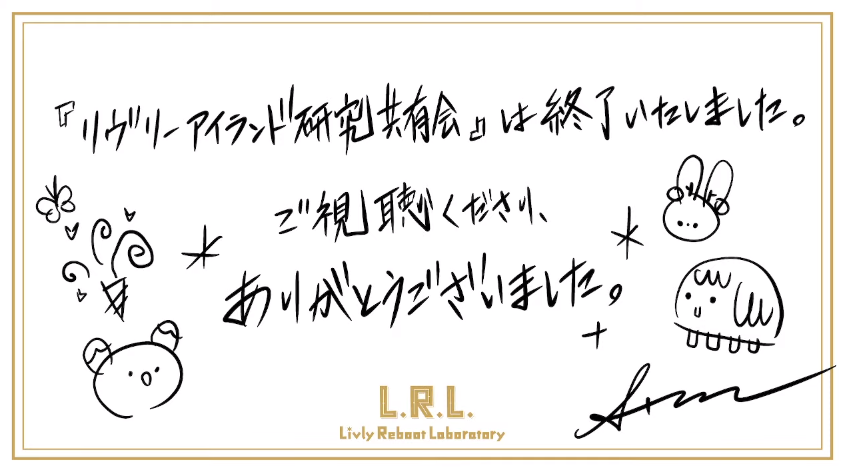 『リヴリーアイランド研究共有会』は終了いたしました。
ご視聴くださり、
ありがとうございました。
L.R.L.
Livly Reboot Laboratory